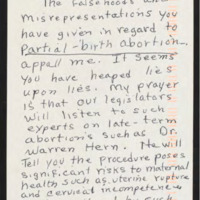 The falsehoods and
misrepresentations you
have given in regard to
Partial-birth abortion
appall me. It seems
You have heaped lies
upon lies. My prayer
is that our legislators
will listen to such
experts on late-term
abortion's such as Dr.
Warren Hern. He will
Tell you the procedure poses
significant risks to maternal
health such as uterine rupture
and cervical incompetence
such